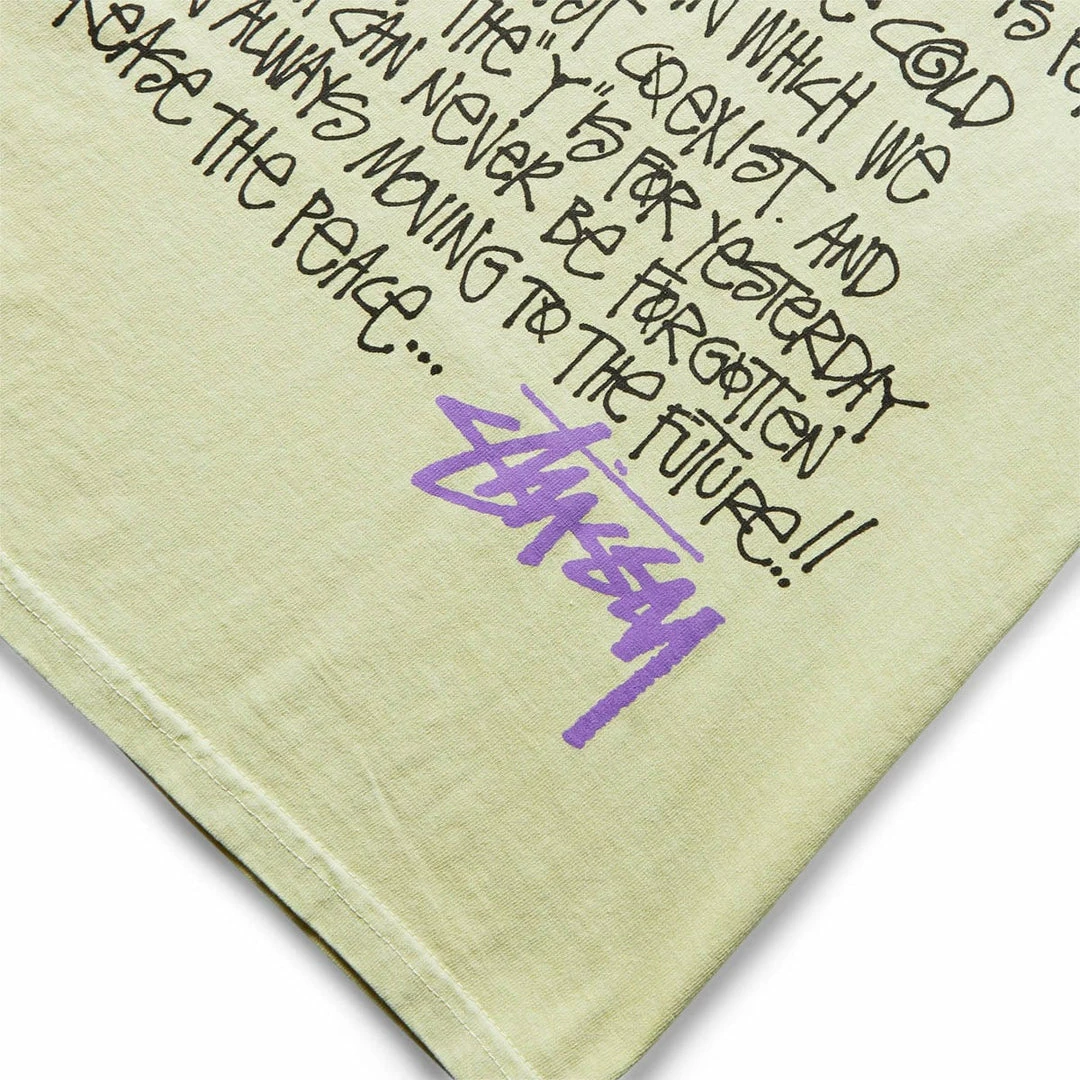 IS
COLD
IN WHICH WE
COEXIST. AND
THE "Y" IS FOR YESTERDAY
CAN NEVER BE FORGOTTEN
ALWAYS MOVING TO THE FUTURE!!
THE PEACE...
Stüssy